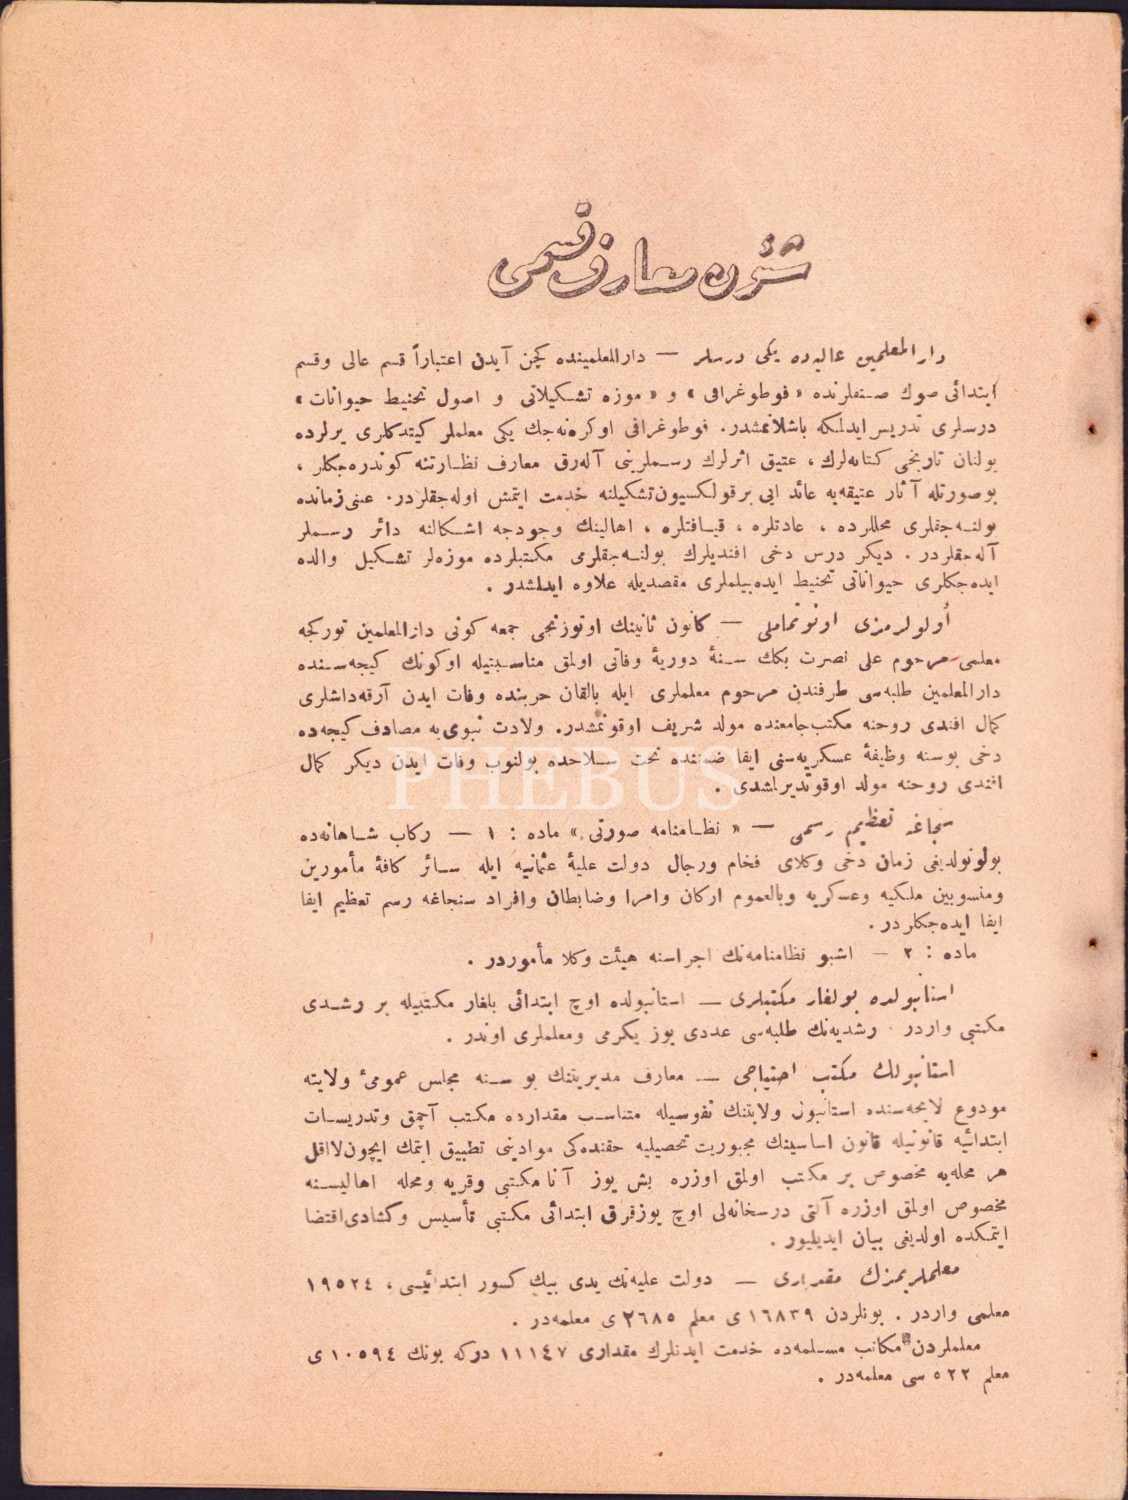 شئون معارف قسمی
دار المعلمین عالیه‌ده یکی درسلر — دارالمعلمینده کچن آیدن اعتباراً قسم عالی وقسم
ابتدائی صوك صنفلرنده « فوطوغرافی » و « موزه تشکیلاتی و اصول تحنیط حیوانات »
درسلری تدریس ایدلمکه باشلانمشدر. فوطوغرافی اوکره‌نه‌جك یکی معلملر کیتدکلری یرلرده
بولنان تاریخی کتابه‌لرك ، عتیق اثرلرك رسملرینی آله‌رق معارف نظارتنه کوندره‌جکلر ،
بوصورتله آثار عتیقه‌یه عائد ایی برقولکسیون تشکیلنه خدمت ایتمش اوله‌جقلردر. عینی زمانده
بولنه‌جقلری محللرده ، عادتلره ، قیافتلره ، اهالینك وجودجه اشکالنه دائر رسملر
آله‌جقلردر . دیکر درس دخی افندیلرك بولنه‌جقلرمی مکتبلرده موزه‌لر تشکیل والده
ایده‌جکلری حیواناتی تحنیط ایده‌بیلملری مقصدیله علاوه ایدلمشدر .
أولولرمزی اونوتماملی — کانون ثانینك اوتوزنجی جمعه کونی دارالمعلمین تورکجه
معلمی مرحوم علی نصرت بکك سنهٔ دوریهٔ وفاتی اولمق مناسبتیله اوکونك کیجه‌سنده
دارالمعلمین طلبه‌سی طرفندن مرحوم معلملری ایله بالقان حربنده وفات ایدن آرقه‌داشلری
کمال افندی روحنه مکتب جامعنده مولد شریف اوقونمشدر. ولادت نبوی‌یه مصادف کیجه‌ده
دخی بوسنه وظیفهٔ عسکریه‌سنی ایفا ضمننده تحت سلاحده بولنوب وفات ایدن دیکر کمال
افندی روحنه مولد اوقوتدیرلمشدی .
سنجاغه تعظیم رسمی — « نظامنامه صورتی » ماده : ۱ — رکاب شاهانه‌ده
بولونولدیغی زمان دخی وکلای فخام ورجال دولت علیهٔ عثمانیه ایله سائر کافهٔ مأمورین
ومنسوبین ملکیه وعسکریه وبالعموم ارکان وامرا وضابطان وافراد سنجاغه رسم تعظیم ایفا
ایفا ایده‌جکلردر .
ماده : ۲ — اشبو نظامنامه‌نك اجراسنه هیئت وکلا مأموردر .
استانبولده بولغار مکتبلری — استانبولده اوچ ابتدائی بلغار مکتبیله بر رشدی
مکتبی واردر . رشدیه‌نك طلبه‌سی عددی یوز یکرمی ومعلملری اوندر .
استانبولك مکتب احتیاجی — معارف مدیریتنك بو سنه مجلس عمومیٔ ولایته
مودوع لایحه‌سنده استانبول ولایتنك نفوسیله متناسب مقدارده مکتب آچمق وتدریسات
ابتدائیه قانونیله قانون اساسینك مجبوریت تحصیلیه حقنده‌کی موادینی تطبیق ایتمك ایچون لااقل
هر محله‌یه مخصوص بر مکتب اولمق اوزره بش یوز آنا مکتبی وقریه ومحله اهالیسنه
مخصوص اولمق اوزره آلتی درسخانه‌لی اوچ یوز قرق ابتدائی مکتبی تأسیس وکشادی اقتضا
ایتمکده اولدیغی بیان ایدیلیور .
معلملریمزك مقداری — دولت علیه‌نك یدی بیك کسور ابتدائیسی ، ۱۹٥۲٤
معلمی واردر . بونلردن ۱٦۸۳۹ ی معلم ۲٦۸٥ ی معلمه‌در .
معلملردن مکاتب مسلمه‌ده خدمت ایدنلرك مقداری ۱۱۱٤۷ درکه بونك ۱۰٥۹٤ ی
معلم ٥۲۲ سی معلمه‌در .
PHEBUS